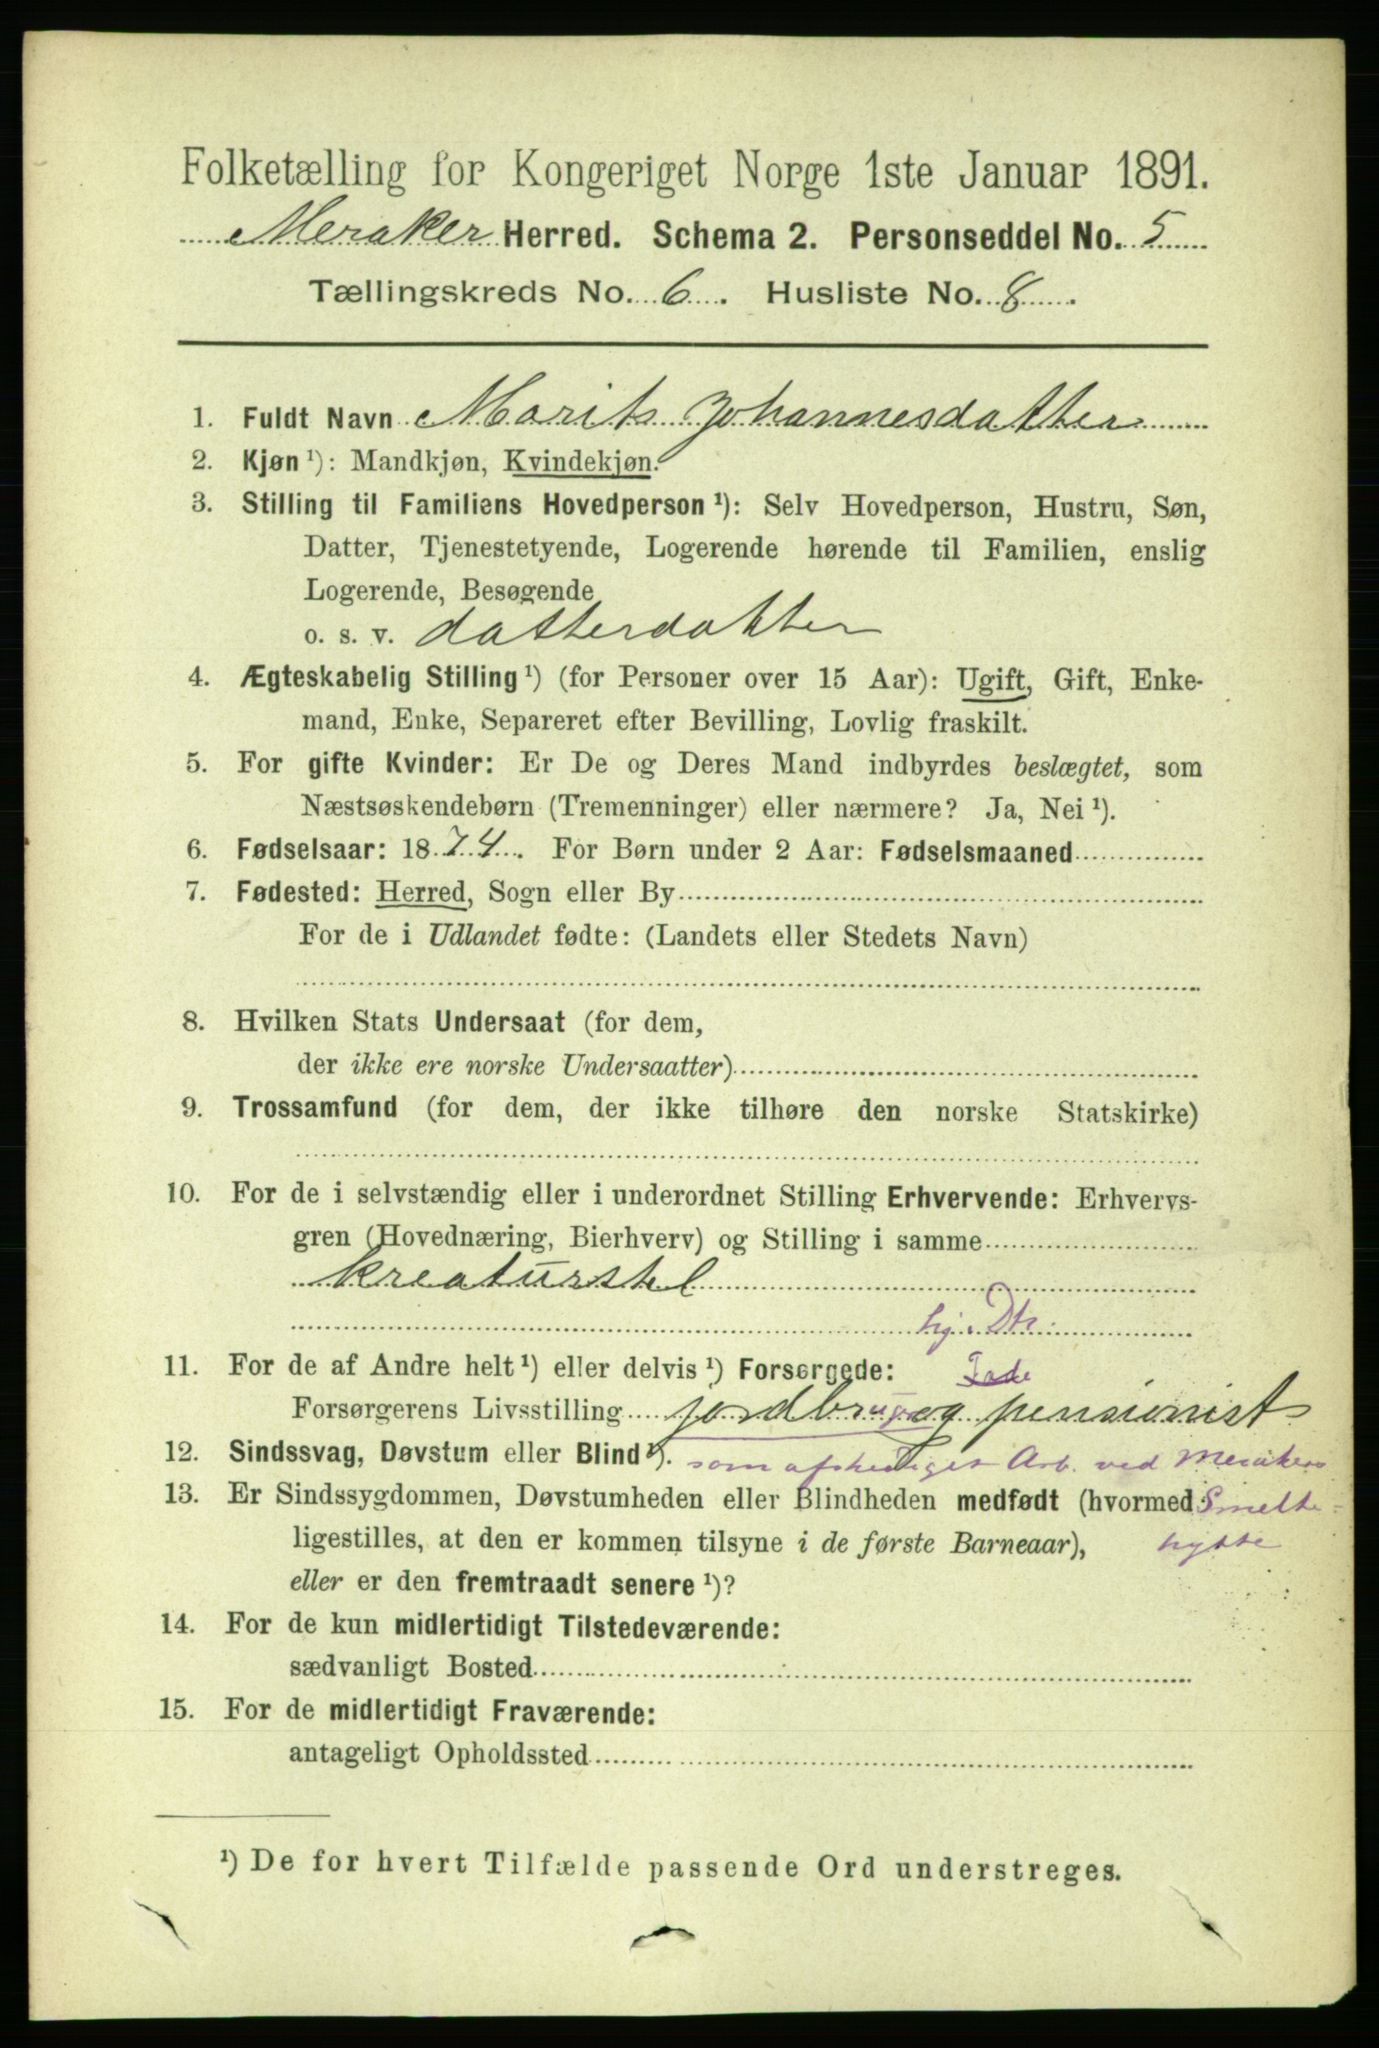 Folketælling for Kongeriget Norge 1ste Januar 1891.
Meraker Herred. Schema 2. Personseddel No. 5
Tællingskreds No. 6. Husliste No. 8.
1. Fuldt Navn Marit Johannesdatter
2. Kjøn ¹): Mandkjøn, Kvindekjøn.
3. Stilling til Familiens Hovedperson ¹): Selv Hovedperson, Hustru, Søn,
Datter, Tjenestetyende, Logerende hørende til Familien, enslig
Logerende, Besøgende
o. s. v. datterdatter
4. Ægteskabelig Stilling ¹) (for Personer over 15 Aar): Ugift, Gift, Enke-
mand, Enke, Separeret efter Bevilling, Lovlig fraskilt.
5. For gifte Kvinder: Er De og Deres Mand indbyrdes beslægtet, som
Næstsøskendebørn (Tremenninger) eller nærmere? Ja, Nei ¹).
6. Fødselsaar: 1874. For Børn under 2 Aar: Fødselsmaaned
7. Fødested: Herred, Sogn eller By
For de i Udlandet fødte: (Landets eller Stedets Navn)
8. Hvilken Stats Undersaat (for dem,
der ikke ere norske Undersaatter)
9. Trossamfund (for dem, der ikke tilhøre den norske Statskirke)
10. For de i selvstændig eller i underordnet Stilling Erhvervende: Erhvervs-
gren (Hovednæring, Bierhverv) og Stilling i samme
kreaturstel
hj. Dtr.
11. For de af Andre helt ¹) eller delvis ¹) Forsørgede:
Forsørgerens Livsstilling jordbrug og pensionist
12. Sindssvag, Døvstum eller Blind ¹). som afskediget Arb. ved Merakers
13. Er Sindssygdommen, Døvstumheden eller Blindheden medfødt (hvormed Smelte-
ligestilles, at den er kommen tilsyne i de første Barneaar), hytte
eller er den fremtraadt senere ¹)?
14. For de kun midlertidigt Tilstedeværende:
sædvanligt Bosted
15. For de midlertidigt Fraværende:
antageligt Opholdssted
¹) De for hvert Tilfælde passende Ord understreges.